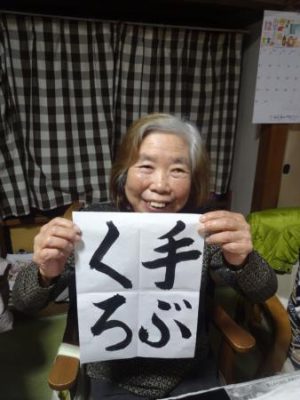 手ぶ
くろ